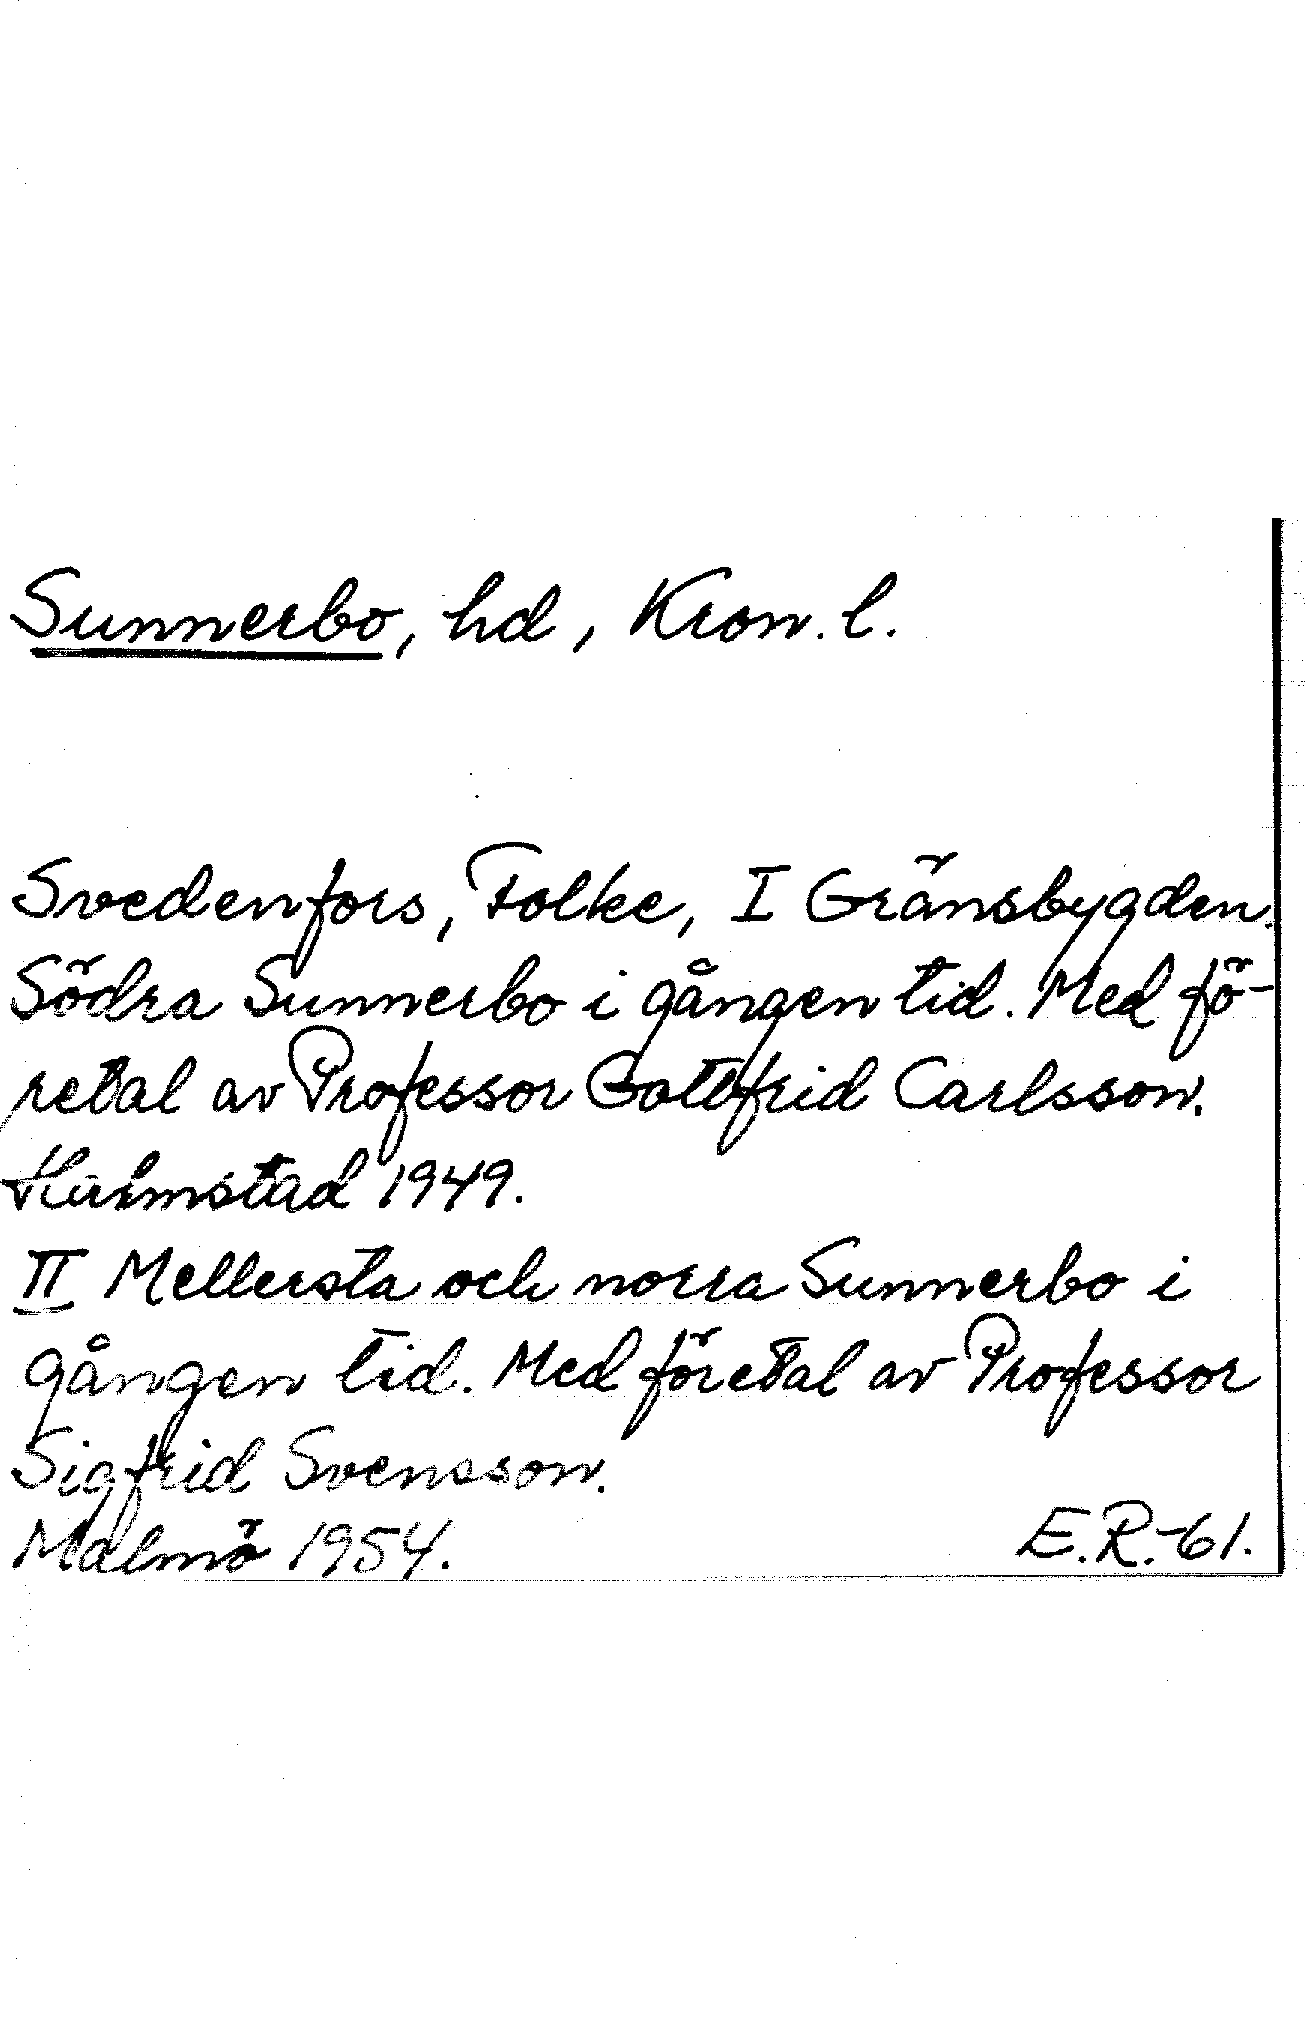 Sunnerbo, hd, Kron. l.
Svedenfors, Folke, I Gränsbygden.
Södra Sunnerbo i gången tid. Med fö-
retal av Professor Gottfrid Carlsson.
Halmstad 1949.
II Mellersta och norra Sunnerbo i
gången tid. Med företal av Professor
Sigfrid Svensson.
Malmö 1954.
E.R.-61.